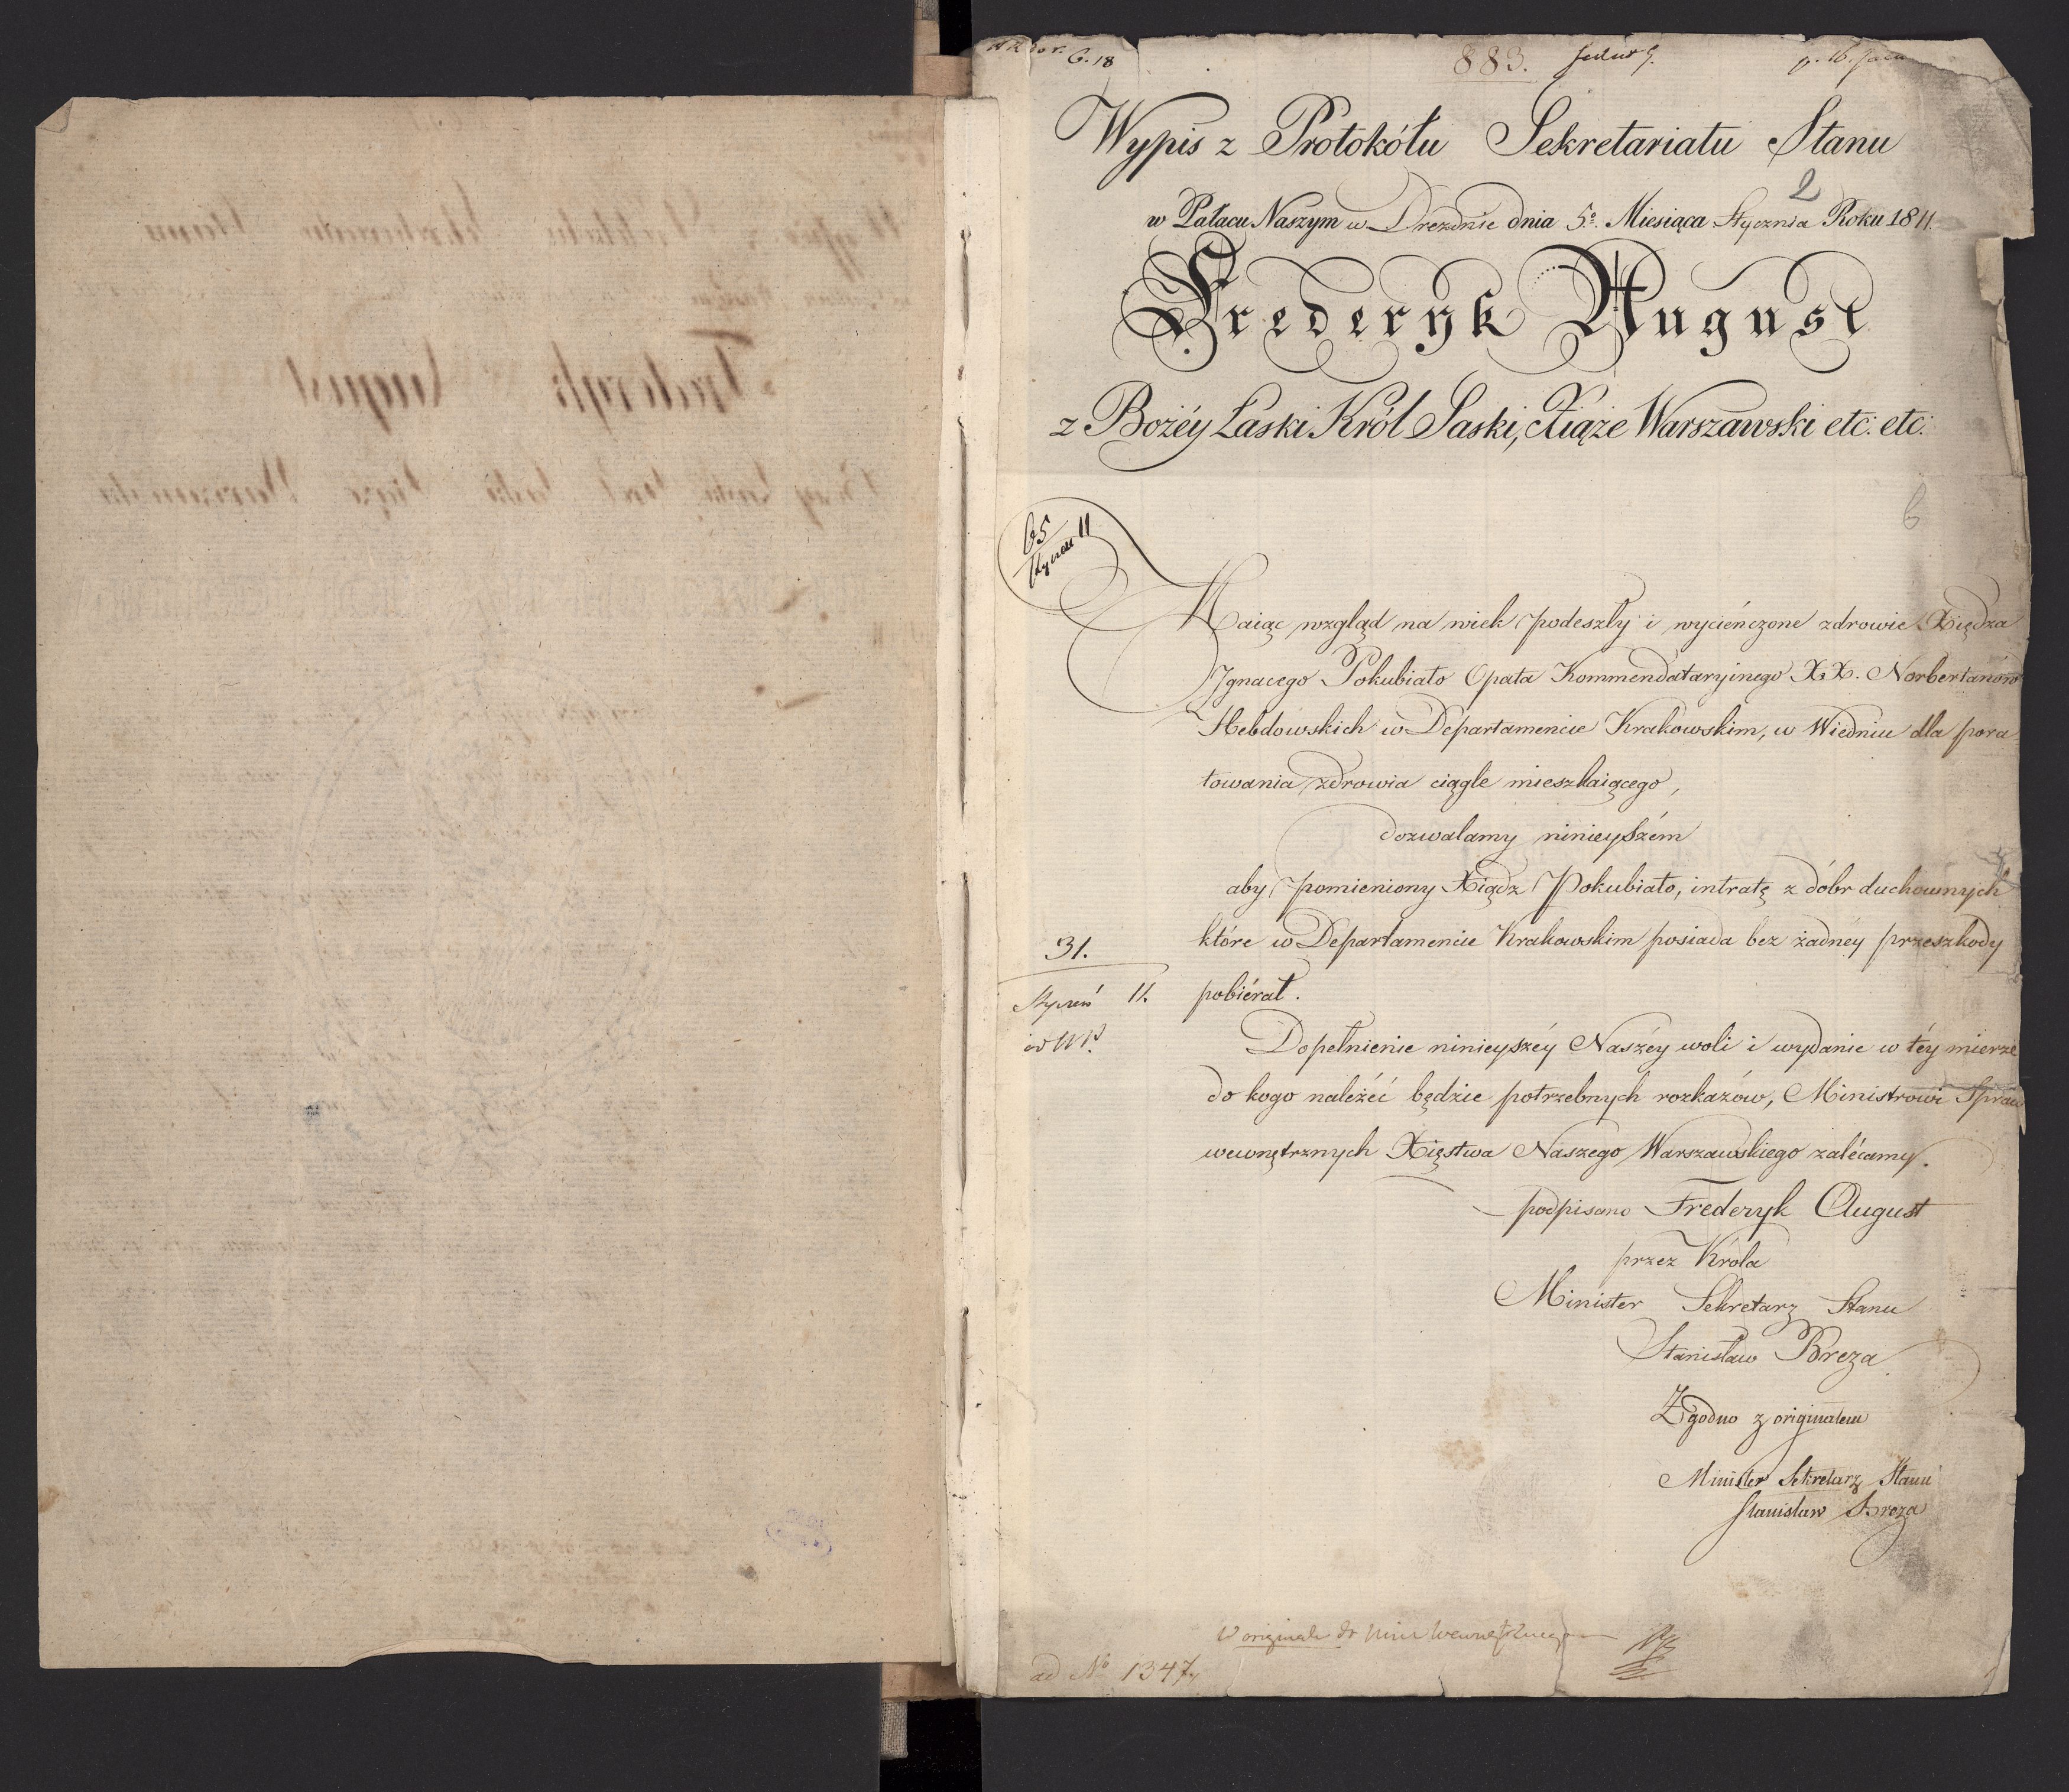 G. 18
883.
Wypis z Protokółu Sekretariatu Stanu
2
w Pałacu Naszym w Dreznie dnia 5º. Miesiąca Stycznia Roku 1811.
Frederyk August
z Bożéy Łaski Król Saski, Xiąże Warszawski etc: etc:
6
65
Styczeń 11
Maiąc wzgląd na wiek podeszły i wycieńczone zdrowie Xiędza
Ignacego Pokubiało Opata Kommendataryinego XX. Norbertanów
Hebdowskich w Departamencie Krakowskim, w Wiedniu dla pora
towania zdrowia ciągle mieszkaiącego,
dozwalamy ninieyszém
aby pomieniony Xiądz Pokubiało, intratę z dóbr duchownych
które w Departamencie Krakowskim posiada bez żadnéy przeszkody
pobiérał.
31.
Styczeń 11.
Dopełnienie ninieyszéy Naszéy woli i wydanie w téy mierze
do kogo należéć będzie potrzebnych rozkazów, Ministrowi Spraw
wewnętrznych Xięstwa Naszego Warszawskiego zalécamy.
podpisano Frederyk August
przez Króla
Minister Sekretarz Stanu
Stanisław Breza
Zgodno z originałem
Minister Sekretarz Stanu
Stanisław Breza
W originale do Min Wewnętrznego
ad Nº 1347.